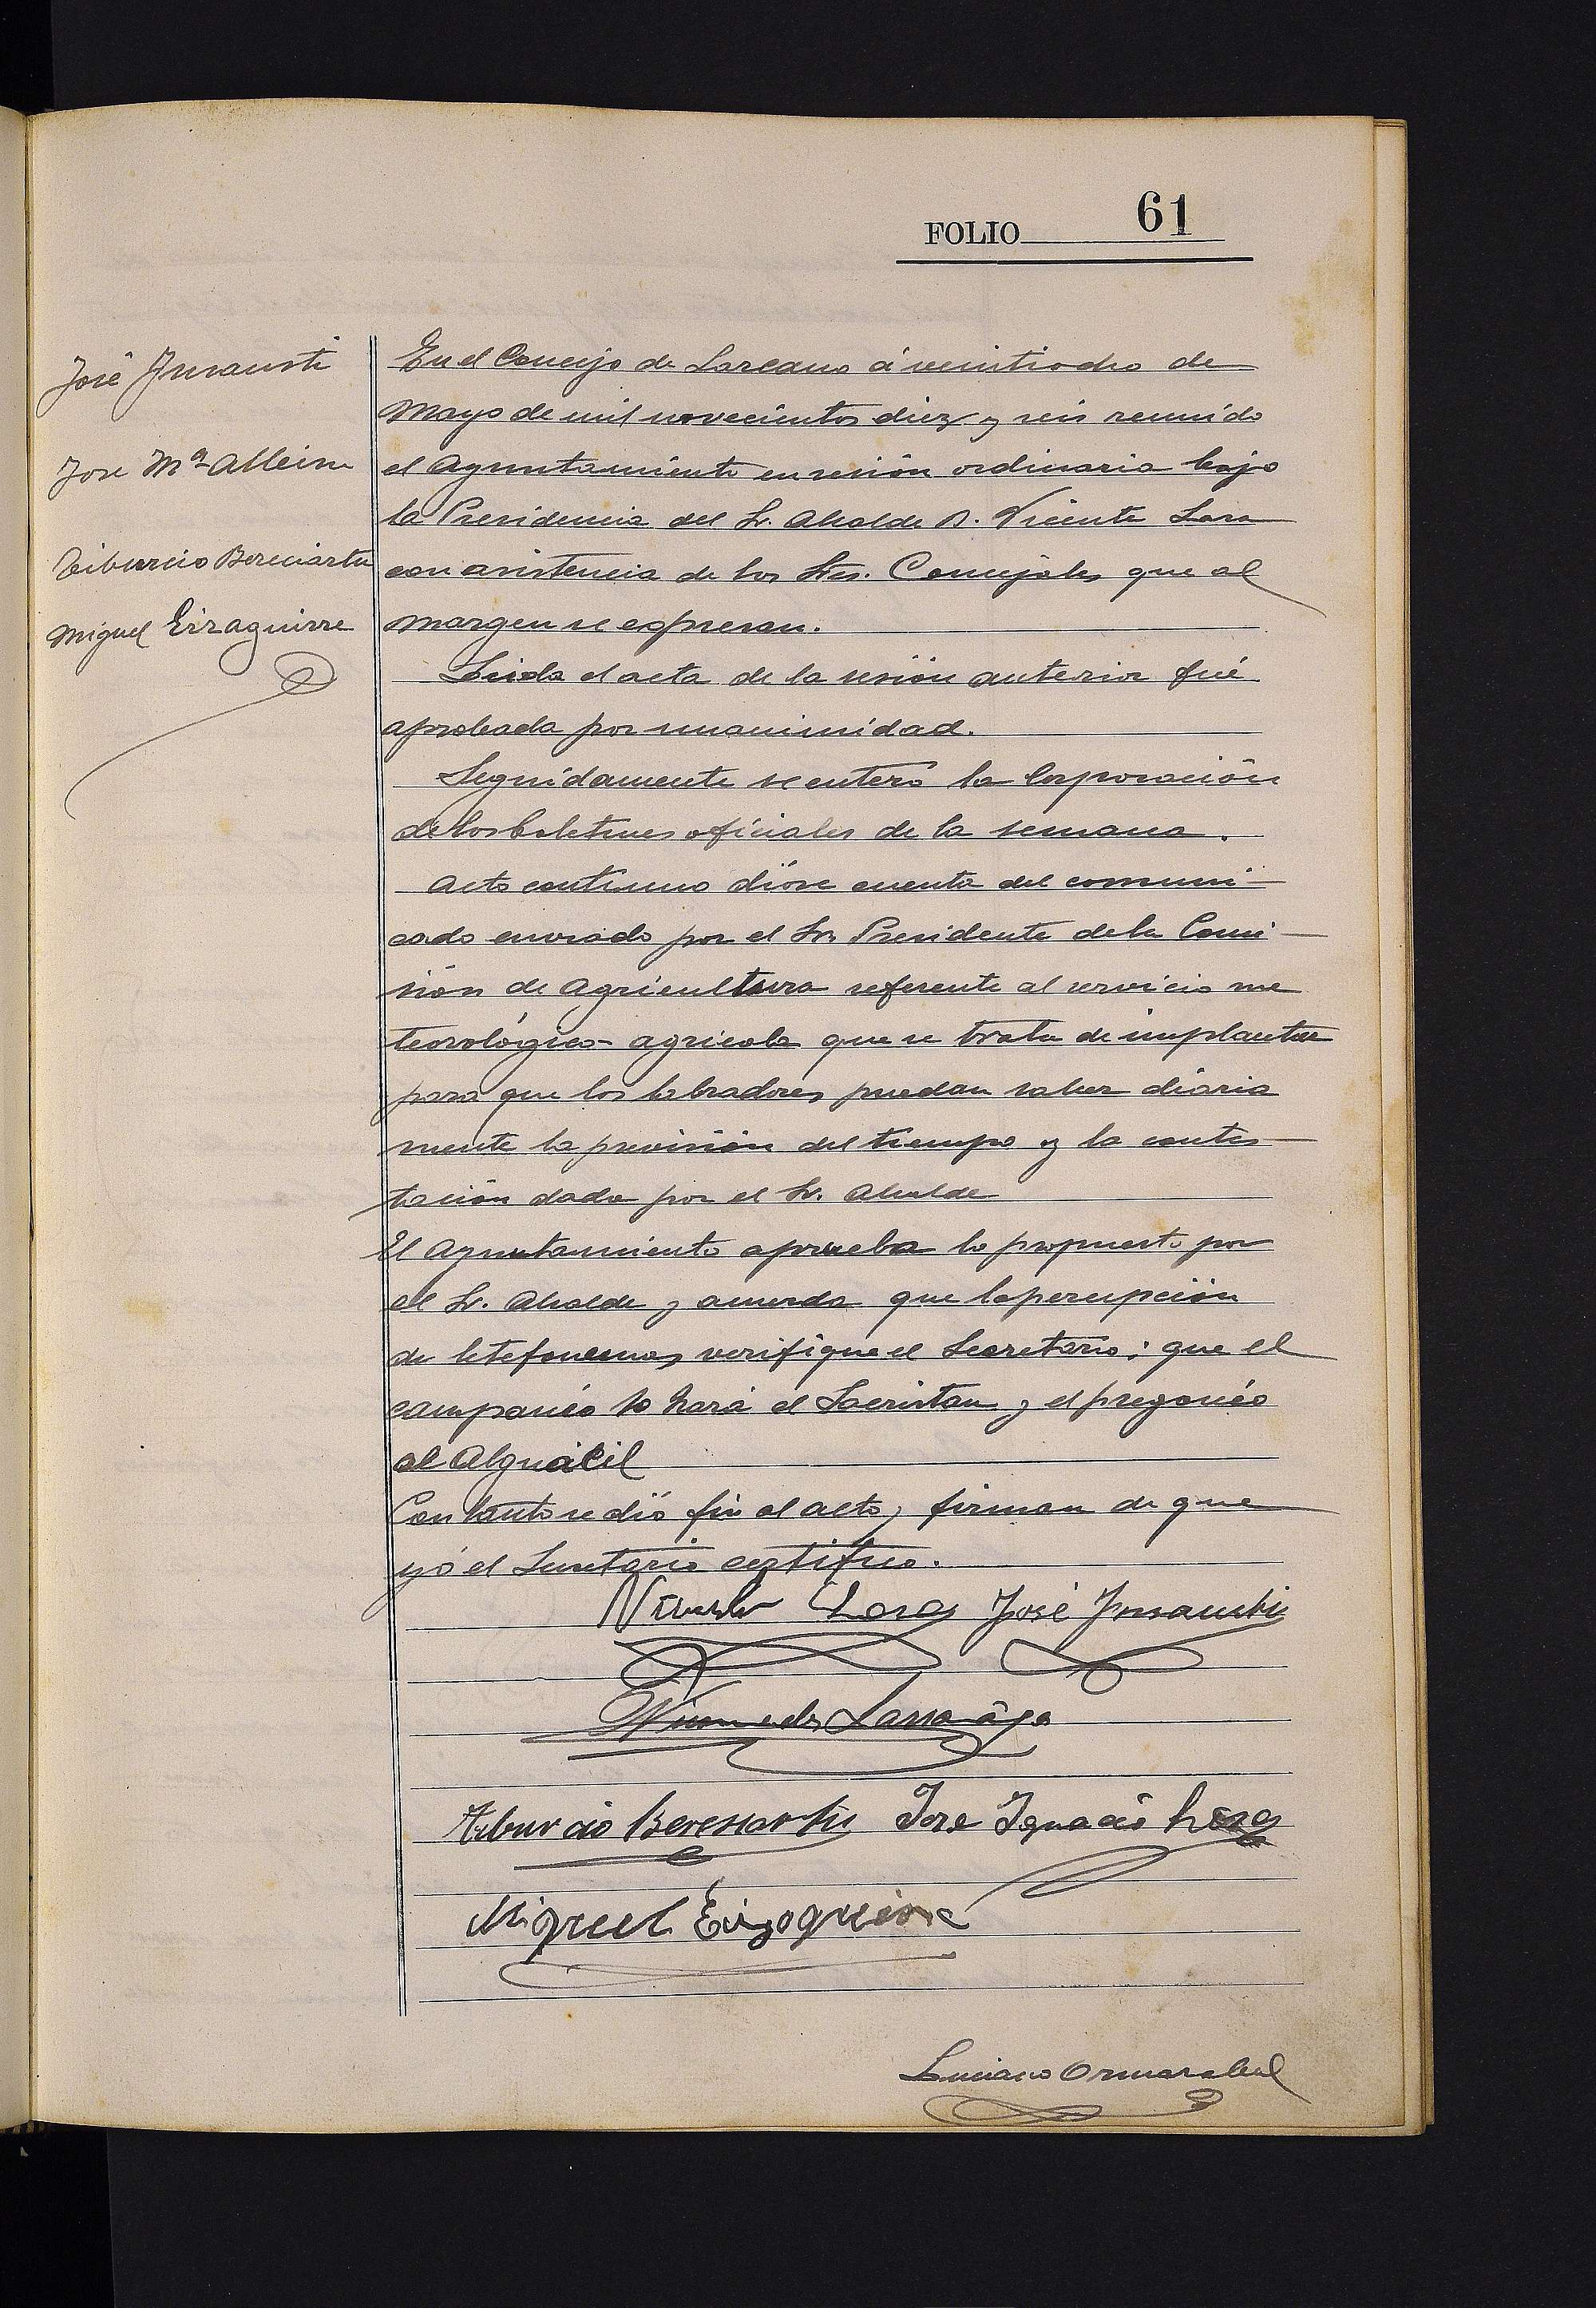 FOLIO 61
José Insausti
Jose Mª
Tiburcio Bereciartu
Miguel Eizaguirre
En el Concejo de Lazcano á veintiocho de
Mayo de mil novecientos diez y seis reunido
el Ayuntamiento en sesión ordinaria bajo
la Presidencia del Sr. Alcalde D. Vicente Lasa
con asistencia de los Sres. Concejales que al
margen se expresan.
Leida el acta de la sesión anterior fué
aprobada por unanimidad.
Seguidamente se enteró la Corporación
de los boletines oficiales de la semana.
Acto continuo dióse cuenta del comuni-
cado enviado por el Sr. Presidente de la Comi-
sión de Agricultura referente al servicio me
teorológico-agricola que se trata de implantar
para que los labradores puedan saber diaria
mente la previsión del tiempo y la contes-
tación dada por el Sr. Alcalde
El Ayuntamiento aprueba lo propuesto por
el Sr. Alcalde y acuerda que la percepción
de telefonemas verifique el Secretario; que el
campaneo lo hará el Sacristan y el pregonéo
al Alguacil
Con tanto se dió fin al acto, firman de que
yó el Secretario certifico.
Vicente Lasa José Insausti
Larrañaga
Tiburcio Bereciartu Jose Ignacio Lasa
Miguel Eizaguirre
Luciano Ormazabal